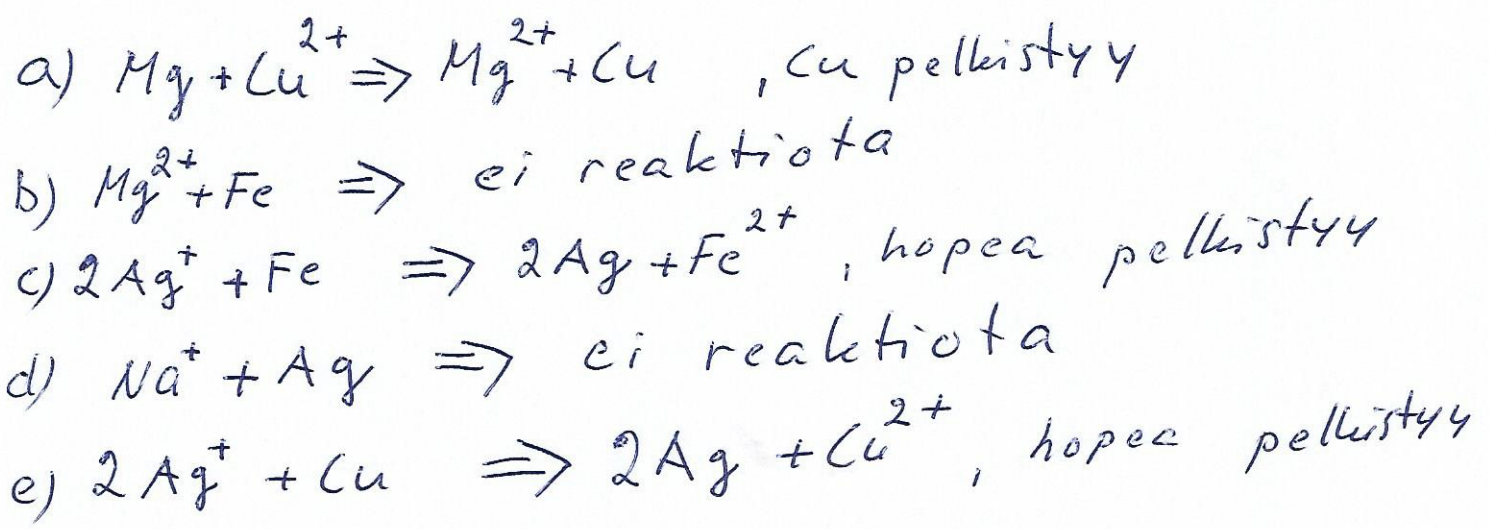 a) Mg + Cu²⁺ ⇒ Mg²⁺ + Cu , Cu pelkistyy
b) Mg²⁺ + Fe ⇒ ei reaktiota
c) 2Ag⁺ + Fe ⇒ 2Ag + Fe²⁺ , hopea pelkistyy
d) Na⁺ + Ag ⇒ ei reaktiota
e) 2Ag⁺ + Cu ⇒ 2Ag + Cu²⁺ , hopea pelkistyy